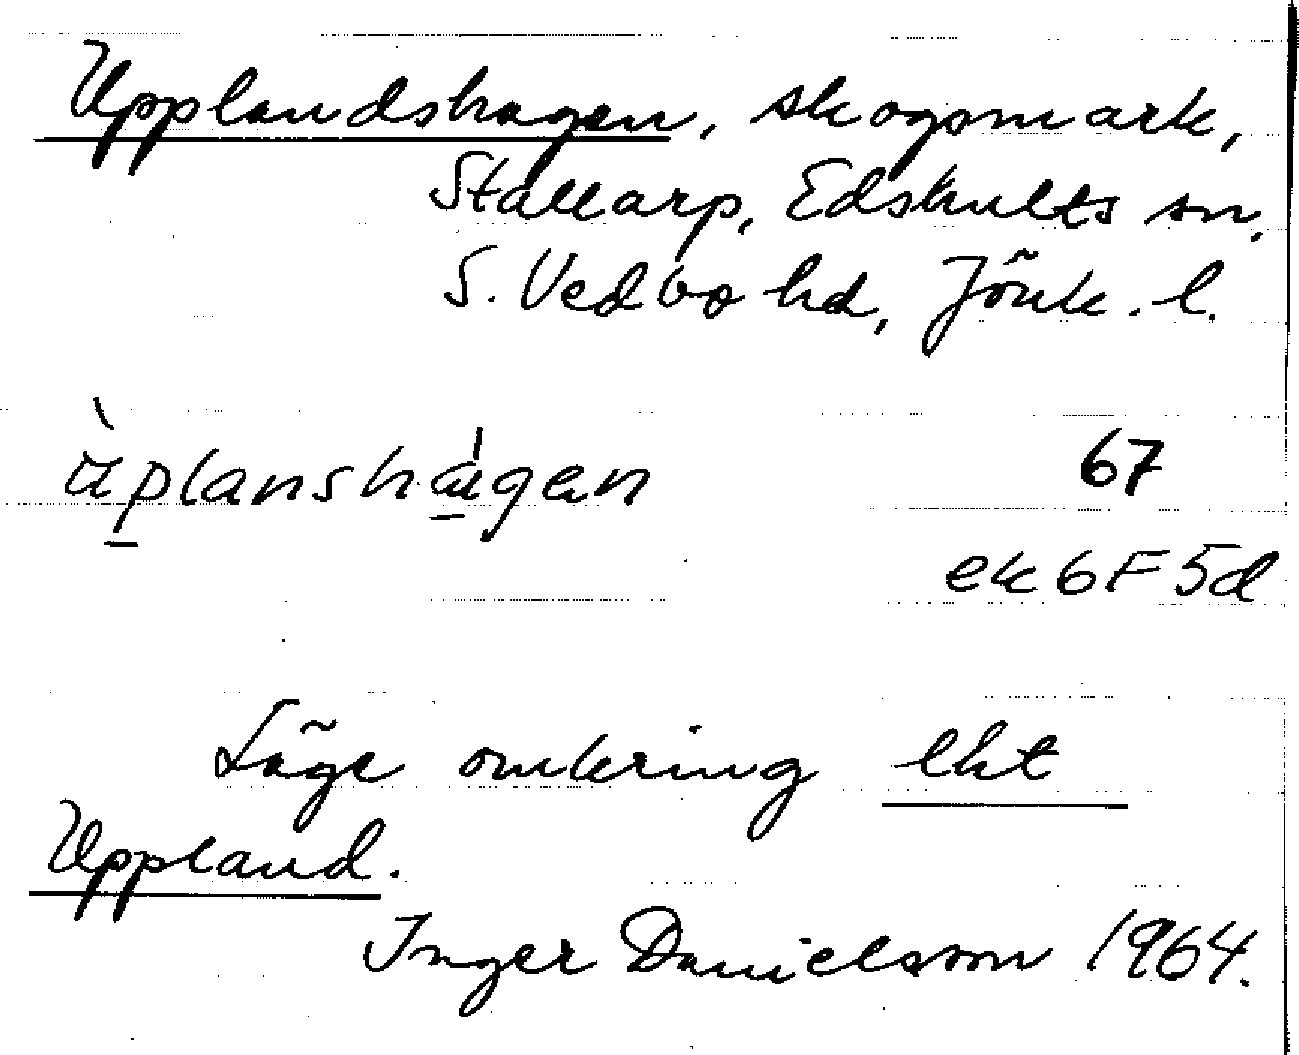 Upplandshagen, skogsmark,
Stallarp, Edshults sn,
S. Vedbo hd, Jönk. l.
àplanshagen
67
ek 6F 5d
Läge omkring lht
Uppland.
Inger Danielsson 1964.